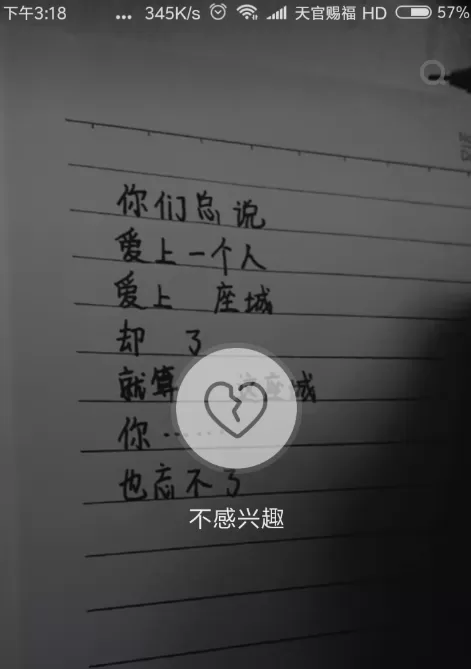 下午3:18 ... 345K/s 天官赐福 HD 57%
你们总说
爱上一个人
爱上 座城
却 了
就算 这座城
你……
也忘不了
不感兴趣